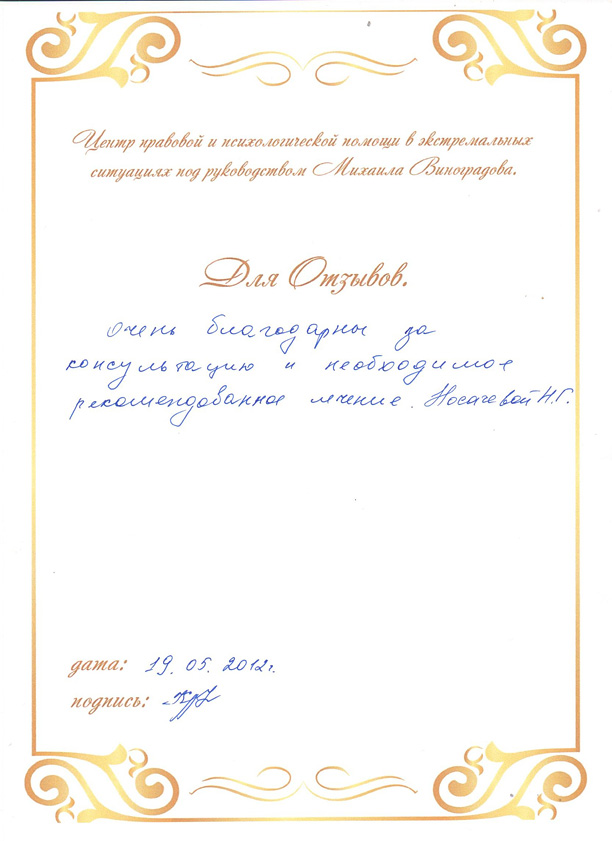 Центр правовой и психологической помощи в экстремальных
ситуациях под руководством Михаила Виноградова.
Для Отзывов.
очень благодарны за
консультацию и необходимое
рекомендованное лечение. Носачевой Н.Г.
дата: 19.05.2012г.
подпись: